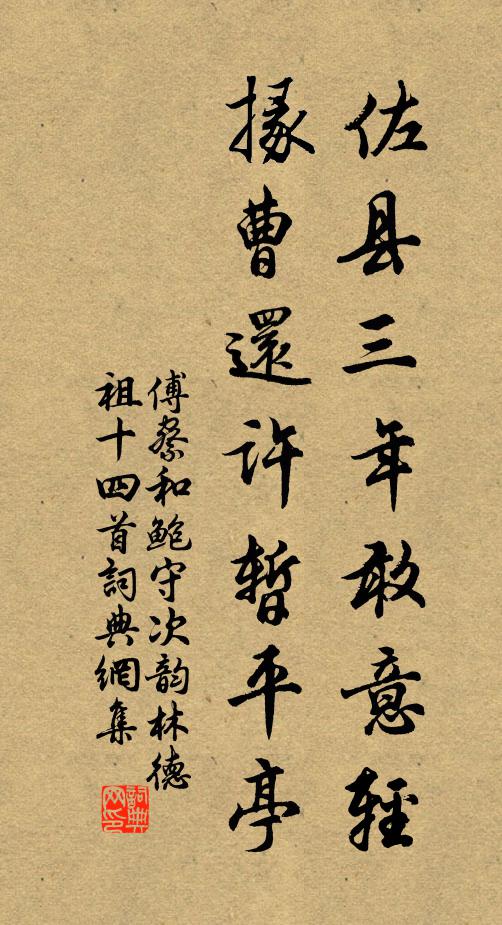 佐县三年敢意轻
掾曹還许暂平亭
傅察和鲍守次韵林德
祖十四首詞典網集
詞典網印